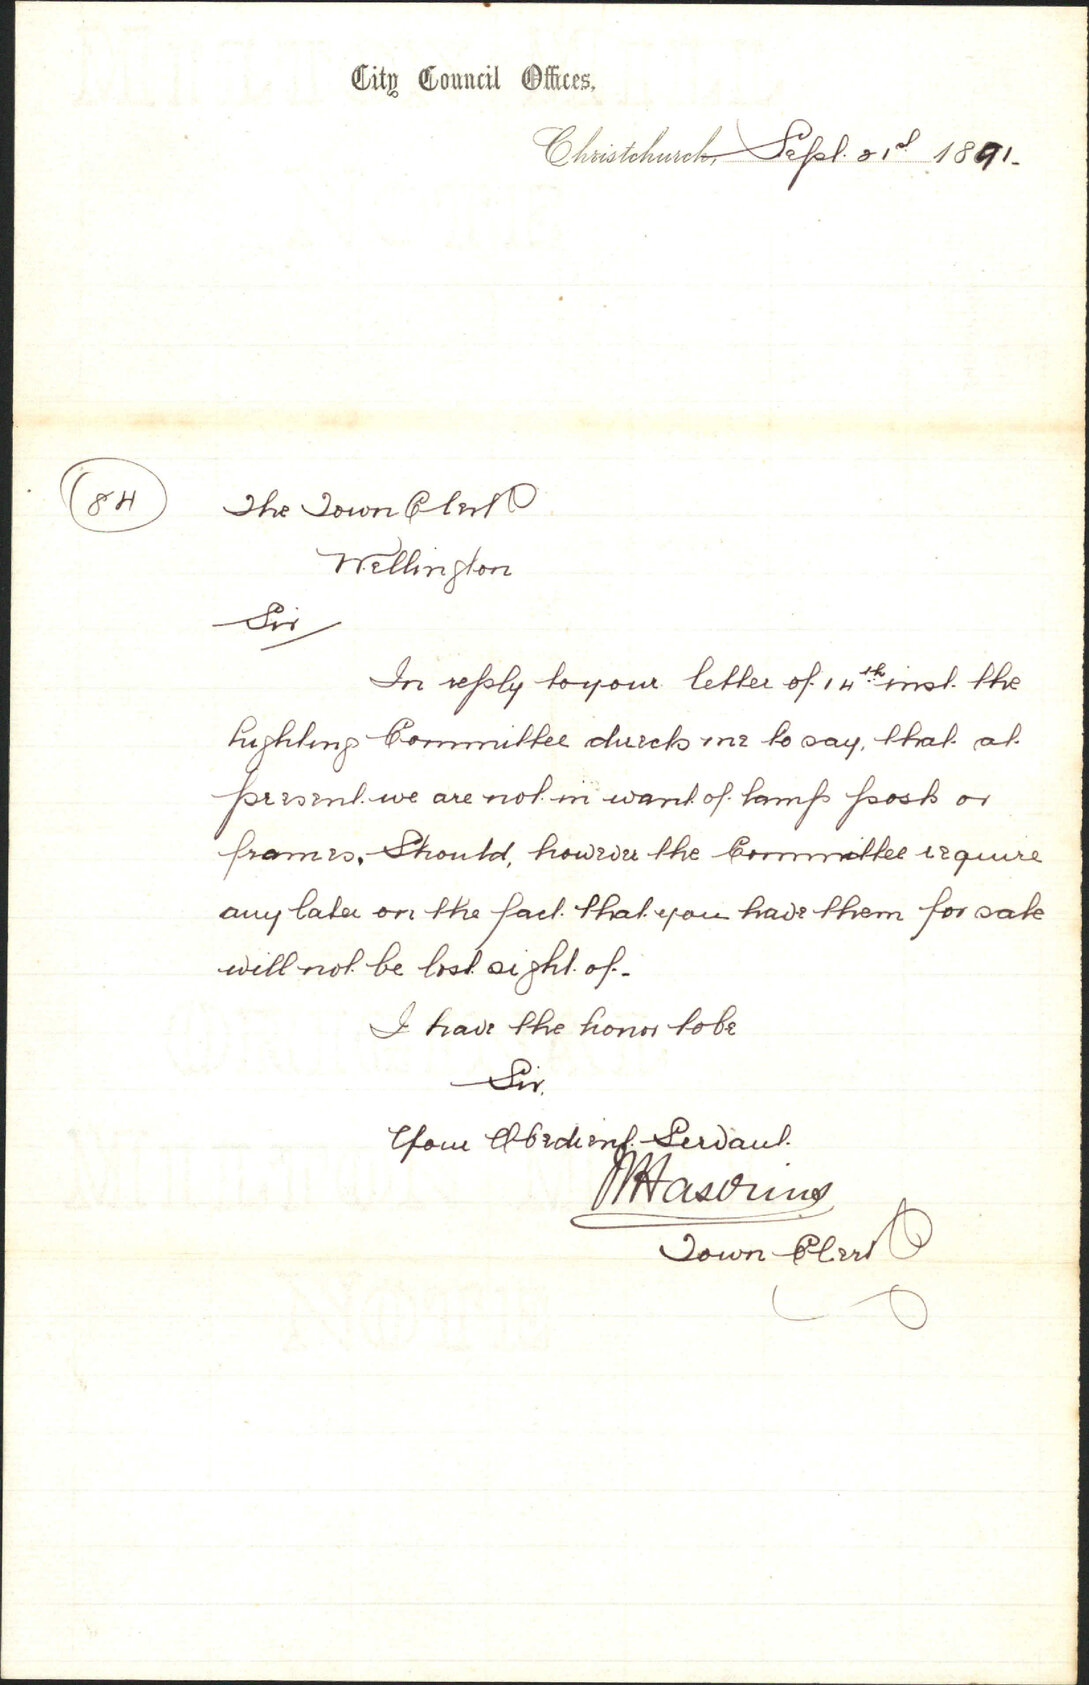 City Council Offices,
Christchurch, Sept. 21st 1891.
84
The Town Clerk
Wellington
Sir
In reply to your letter of 14th inst. the
Lighting Committee directs me to say, that at
present we are not in want of lamp posts or
frames. Should, however the Committee require
any later on the fact that you have them for sale
will not be lost sight of.
I have the honor to be
Sir,
Your Obedient Servant.
Haskins
Town Clerk